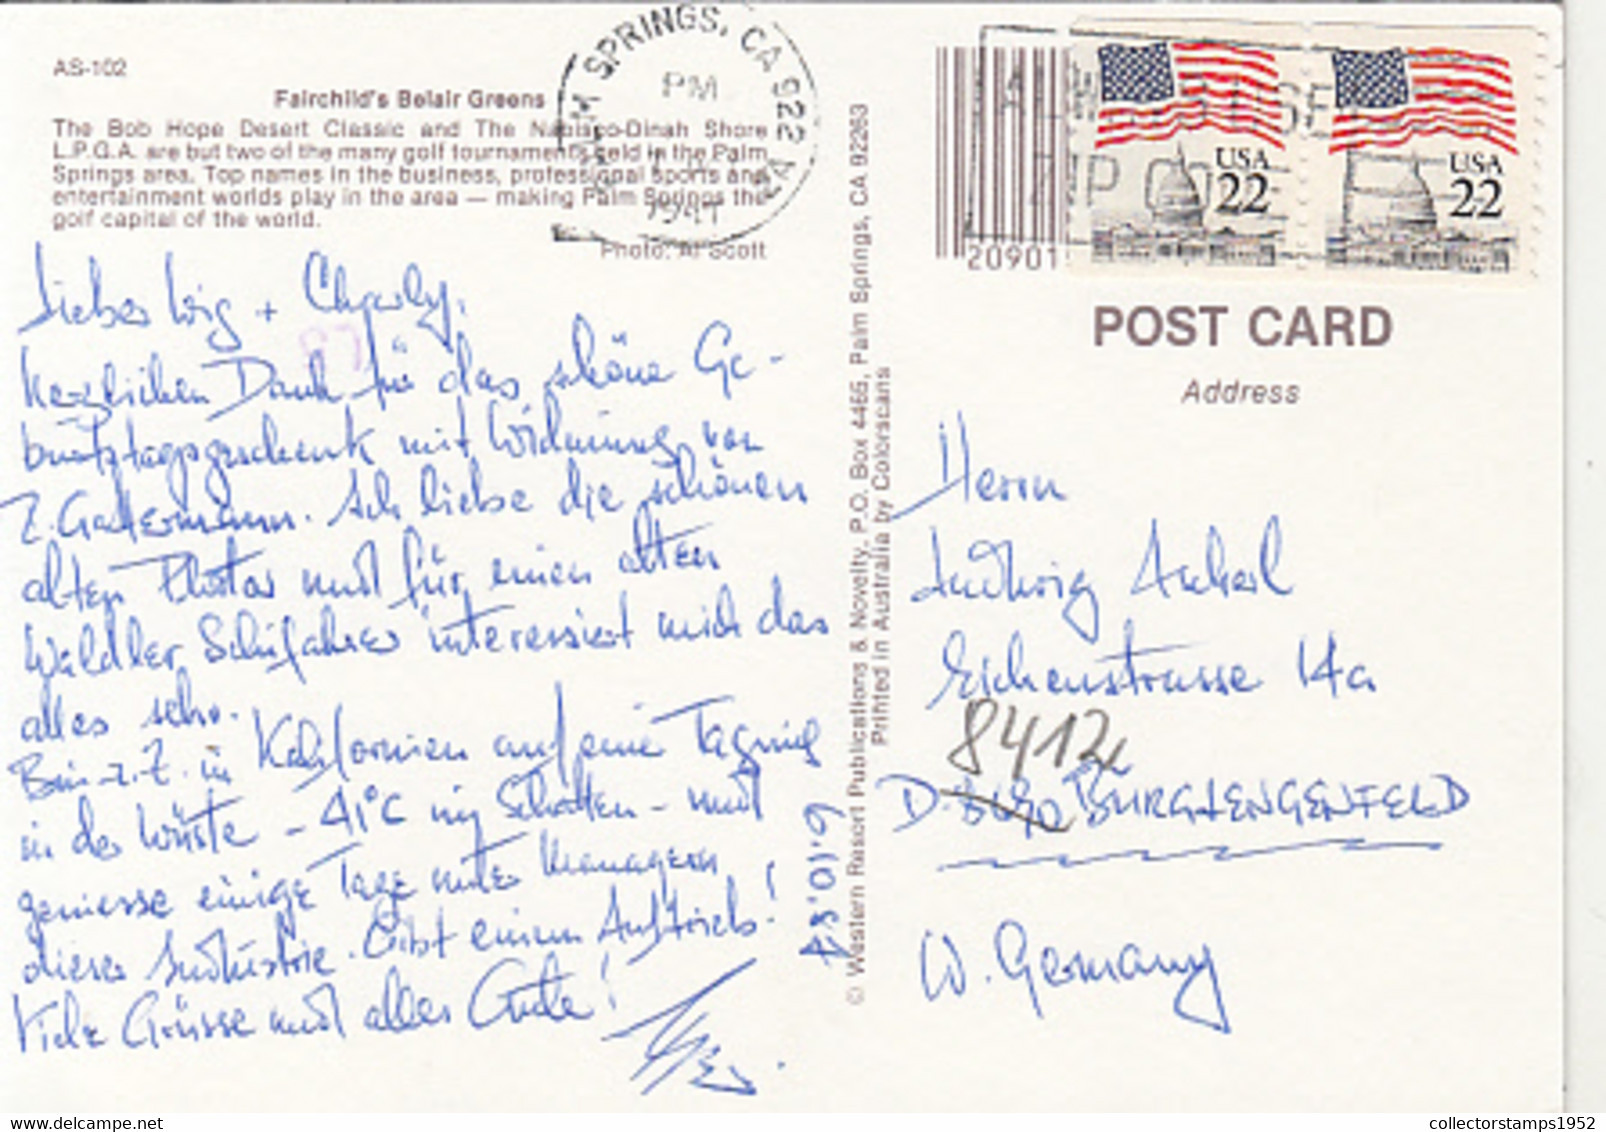 AS-102
Fairchild's Belair Greens
The Bob Hope Desert Classic and The Nabisco-Dinah Shore
L.P.G.A. are but two of the many golf tournaments held in the Palm
Springs area. Top names in the business, professional sports and
entertainment worlds play in the area — making Palm Springs the
golf capital of the world.
Photo: Al Scott
SPRINGS, CA 922
PM
Lieber Wig + Charly,
herzlichen Dank für das schöne Ge-
burtstagsgeschenk mit Widmung von
Z. Gattermann. Ich liebe die schönen
alten Photos und für einen alten
Waldler Schifahrer interessiert mich das
alles sehr.
Bin z.Z. in Kalifornien auf eine Tagung
in der Wüste – 41°C im Schatten – und
geniesse einige Tage unter Managern
dieser Industrie. Gibt einem Auftrieb!
Viele Grüsse und alles Gute!
6.10.87
© Western Resort Publications & Novelty, P.O. Box 4465, Palm Springs, CA 92263
Printed in Australia by Colorscans
20901
USA
22
USA
22
POST CARD
Address
Herrn
Ludwig
Eichenstrasse 14a
8412
D- BURGLENGENFELD
W. Germany
collectorstamps1952